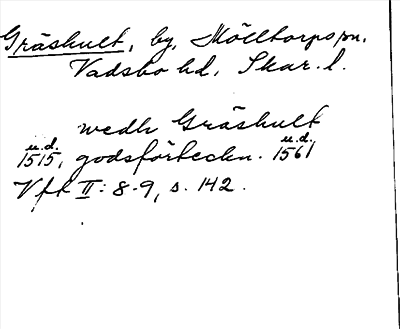 Gräshult, by, Mölltorps sn.
Vadsbo hd, Skar. l.
wedh Gräshult
u.d. u.d.
1515, godsförteckn. 1561
Vft II: 8-9, s. 142.